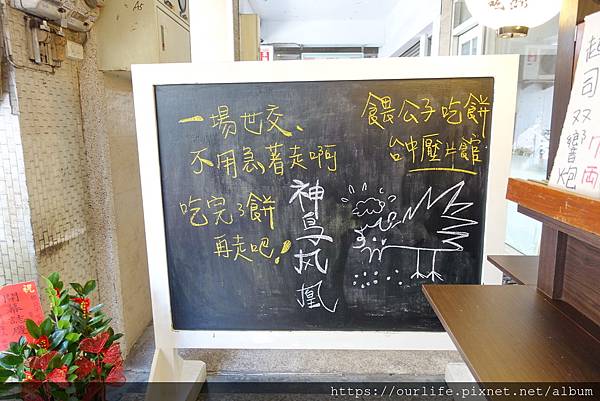 餵公子吃餅
台中壓片館
一場世交、
不用急著走啊
吃完了餅
再走吧!
神鳥鳳凰
起司双響炮
祝
https://ourlife.pixnet.net/album